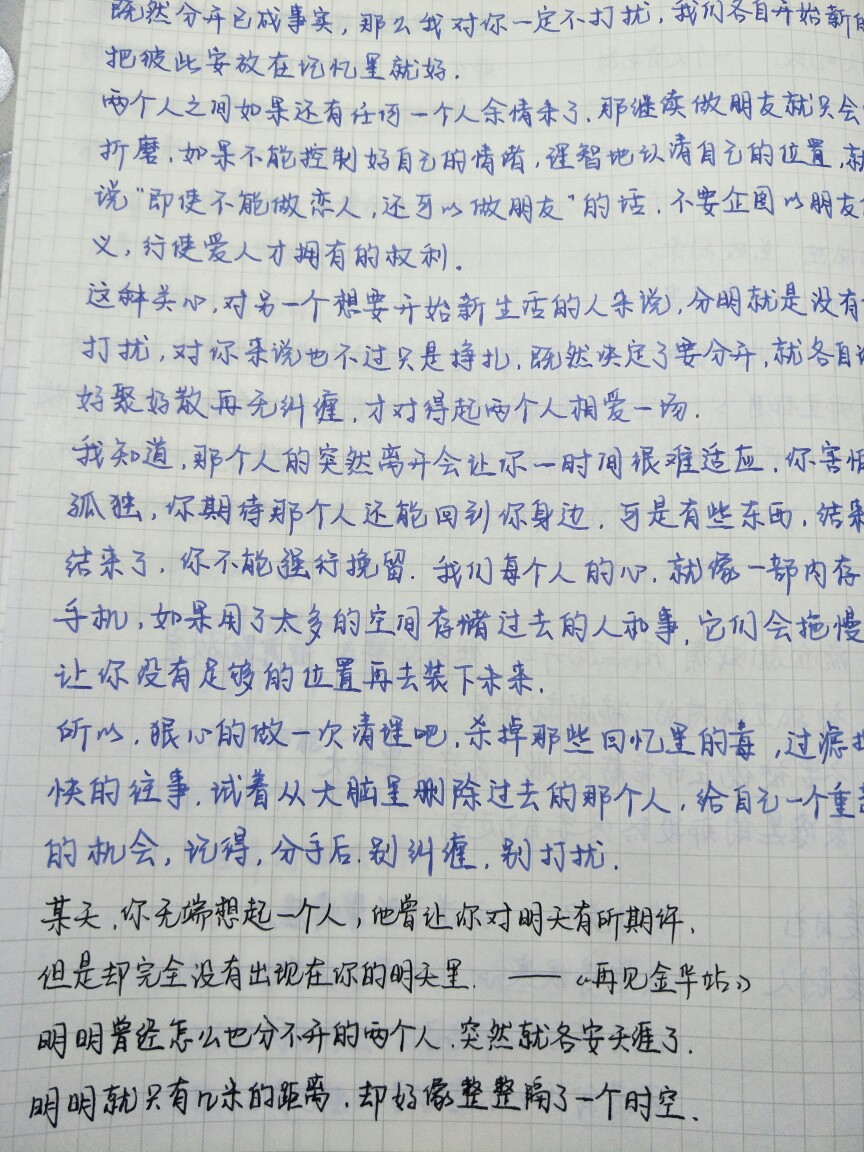 既然分开已成事实，那么我对你一定不打扰，我们各自开始新的
把彼此安放在记忆里就好．
两个人之间如果还有任何一个人余情未了，那继续做朋友就只会
折磨，如果不能控制好自己的情绪，理智地认清自己的位置，就
说“即使不能做恋人，还可以做朋友”的话．不要企图以朋友
义，行使爱人才拥有的权利．
这种关心，对另一个想要开始新生活的人来说，分明就是没有
打扰，对你来说也不过只是挣扎．既然决定了要分开，就各自
好聚好散再无纠缠，才对得起两个人相爱一场．
我知道，那个人的突然离开会让你一时间很难适应．你害怕
孤独，你期待那个人还能回到你身边．可是有些东西，结束
结束了，你不能强行挽留．我们每个人的心，就像一部内存
手机，如果用了太多的空间存储过去的人和事，它们会拖慢
让你没有足够的位置再去装下未来．
所以，狠心的做一次清理吧，杀掉那些回忆里的毒，过滤掉
快的往事，试着从大脑里删除过去的那个人，给自己一个重
的机会，记得，分手后．别纠缠，别打扰．
某天，你无端想起一个人，他曾让你对明天有所期许，
但是却完全没有出现在你的明天里． ——《再见金华站》
明明曾经怎么也分不开的两个人．突然就各安天涯了．
明明就只有几米的距离，却好像整整隔了一个时空．